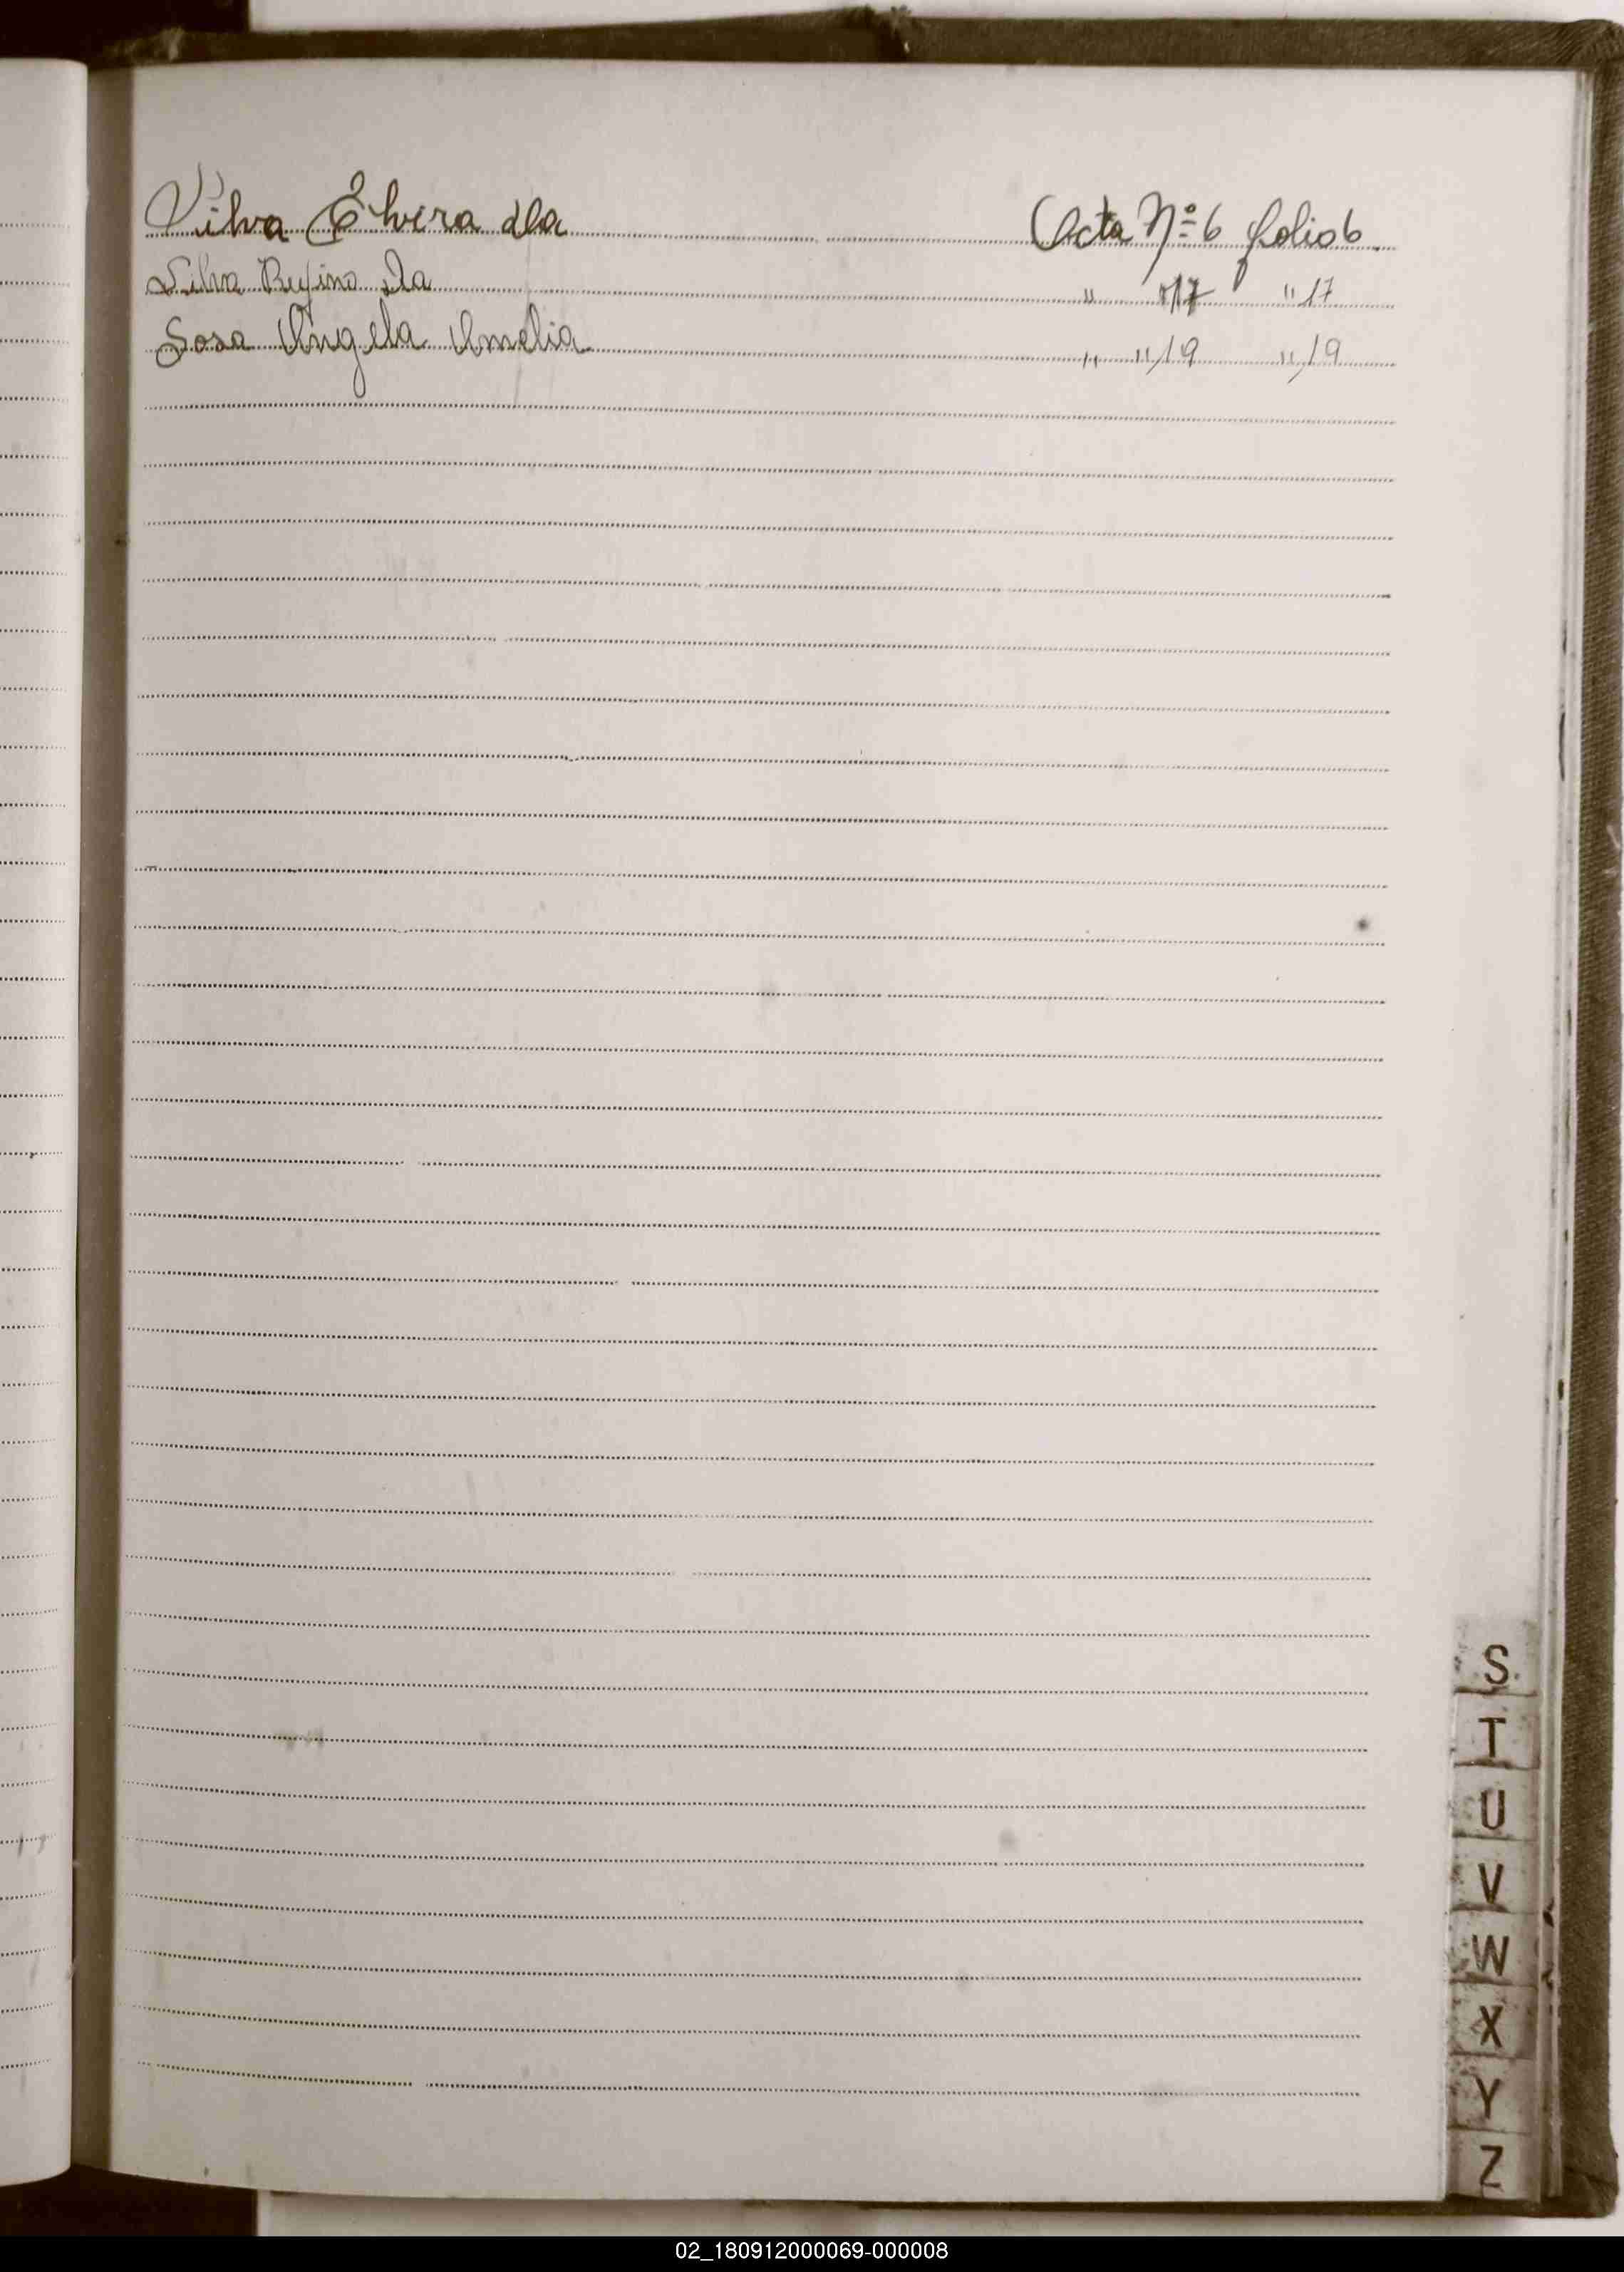 Silva Elvira da Acta Nº 6 folio 6
Silva Rufino da " "17 " 17
Sosa Angela Amelia " " 19 " 19
S
T
U
V
W
X
Y
Z
02_180912000069-000008